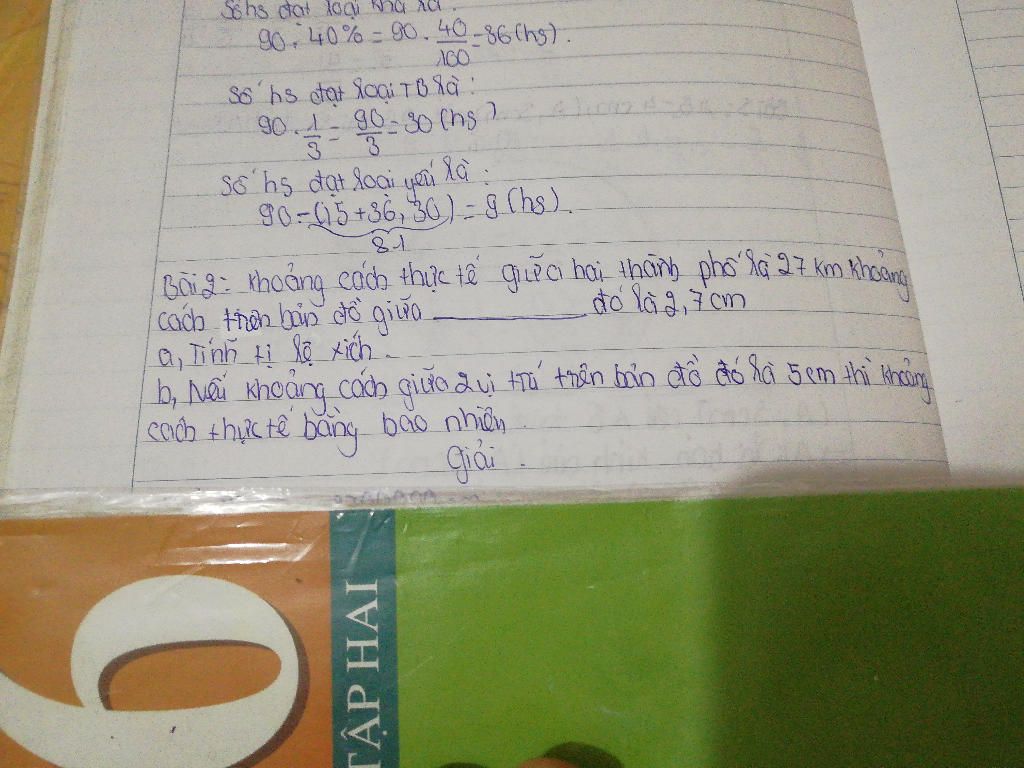 Số hs đạt loại khá là:
90 . 40% = 90 . 40/100 = 36 (hs).
Số hs đạt loại TB là:
90 . 1/3 = 90/3 = 30 (hs)
Số hs đạt loại yếu là:
90 - (15 + 36, 30) = 9 (hs).
81
Bài 2: Khoảng cách thực tế giữa hai thành phố là 27 km khoảng
cách trên bản đồ giữa ________ đó là 2,7cm
a, Tính tỉ lệ xích.
b, Nếu khoảng cách giữa 2 vị trí trên bản đồ đó là 5cm thì khoảng
cách thực tế bằng bao nhiên.
Giải.
6
TẬP HAI